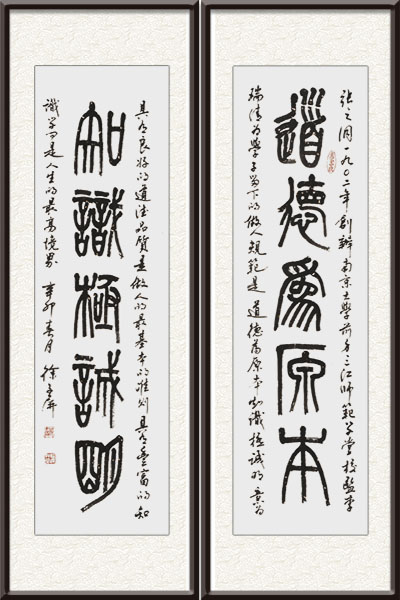 张之洞一九〇二年創辦南京大學前身三江師範学堂校監李
道德為原本
瑞清为學子留下的做人規範是道德為原本知識極誠明意为
具有良好的道德品質是做人的最基本的准则具有豐富的知
知識極誠明
識学问是人生的最高境界 辛卯春月 徐